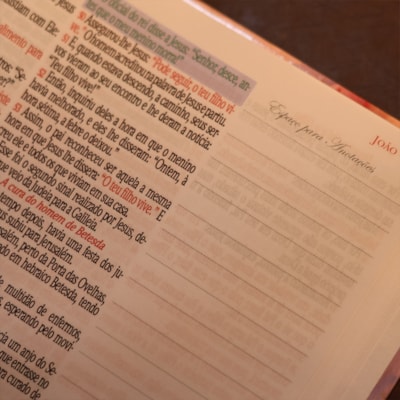 João
Espaço para Anotações
o oficial do rei disse a Jesus: "Senhor, desce, an-
tes que o meu menino morra!"
50 Assegurou-lhe Jesus: "Pode seguir, o teu filho vi-
ve." O homem acreditou na palavra de Jesus e partiu.
51 E, quando estava descendo, a caminho, seus ser-
vos vieram ao seu encontro e lhe deram a notícia:
"Teu filho vive!"
52 Então, inquiriu deles a hora em que o menino
havia melhorado, e eles lhe disseram: "Ontem, à
hora sétima, a febre o deixou."
53 Assim, o pai reconheceu ser aquela a mesma
hora em que Jesus lhe dissera: "O teu filho vive." E
creu ele e todos os que viviam em sua casa.
foi o segundo sinal realizado por Jesus, de-
veio da Judeia para a Galileia.
A cura do homem de Betesda
tempo depois, havia uma festa dos ju-
sus subiu para Jerusalém.
salém, perto da Porta das Ovelhas,
do em hebraico Betesda, tendo
de multidão de enfermos,
s, esperando pelo movi-
cia um anjo do Se-
que entrasse no
ra curado de